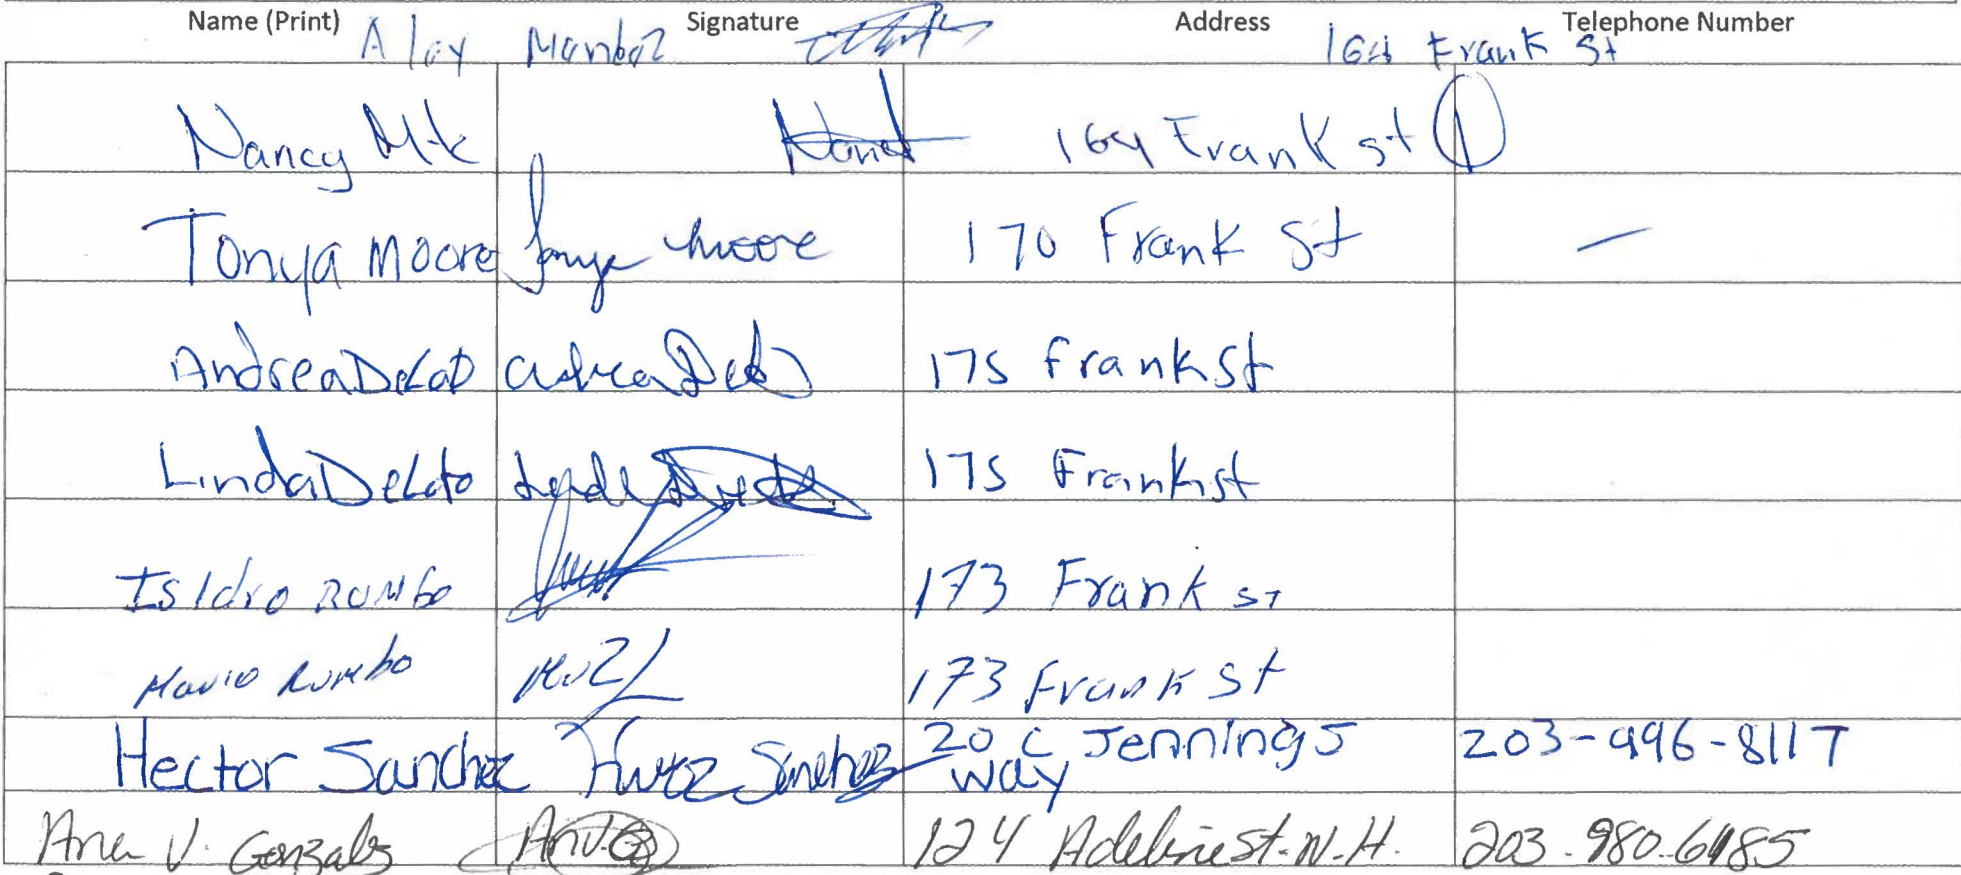 Name (Print) Signature Address Telephone Number
Alex 164 Frank St
Nancy 164 Frank st 1
Tonya Moore Tonya Moore 170 Frank St —
Andrea DeLaO 175 Frank St
Linda DeLato 175 Frank st
Isidro Rumbo 173 Frank ST
Mario Rumbo 173 Frank St
Hector Sanchez Hector Sanchez 20 C Jennings
way 203-996-8117
Ana V. Gonzales Ana V. G 124 Adeline St. N.H. 203-980-6185